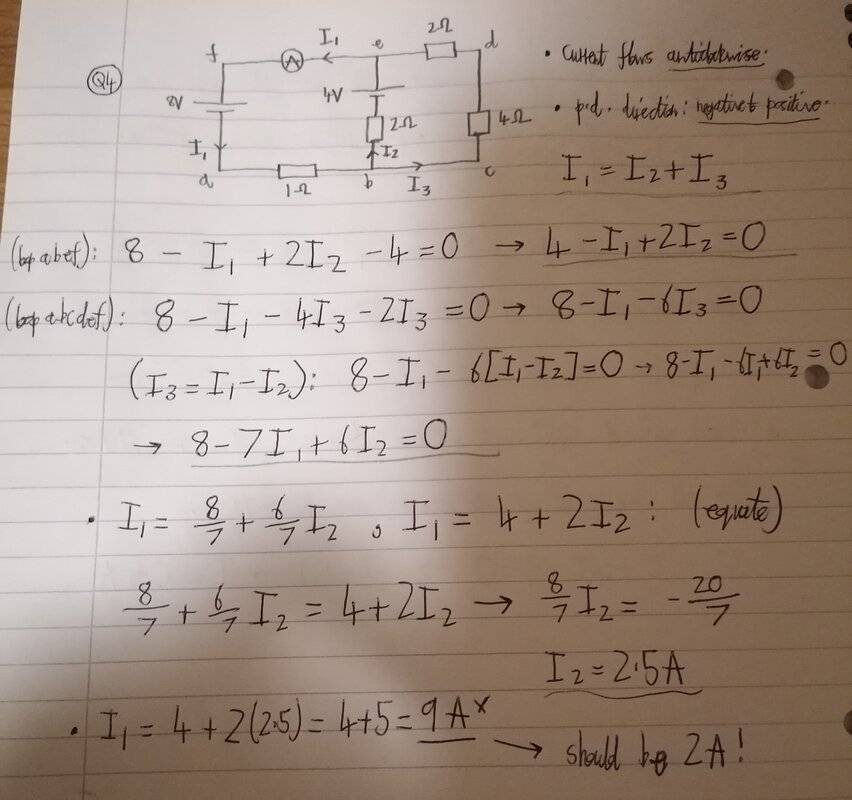 Q4
f I₁ e 2Ω d
8V 4V 2Ω 4Ω
I₁ I₂
a 1Ω b I₃ c
• Current flows anticlockwise.
• p.d. direction: negative to positive.
I₁ = I₂ + I₃
(loop abef): 8 - I₁ + 2I₂ - 4 = 0 → 4 - I₁ + 2I₂ = 0
(loop abcdef): 8 - I₁ - 4I₃ - 2I₃ = 0 → 8 - I₁ - 6I₃ = 0
(I₃ = I₁ - I₂): 8 - I₁ - 6[I₁ - I₂] = 0 → 8 - I₁ - 6I₁ + 6I₂ = 0
→ 8 - 7I₁ + 6I₂ = 0
• I₁ = 8/7 + 6/7 I₂ , I₁ = 4 + 2I₂ : (equate)
8/7 + 6/7 I₂ = 4 + 2I₂ → 8/7 I₂ = - 20/7
I₂ = 2.5A
• I₁ = 4 + 2(2.5) = 4 + 5 = 9A x
→ should be 2A!